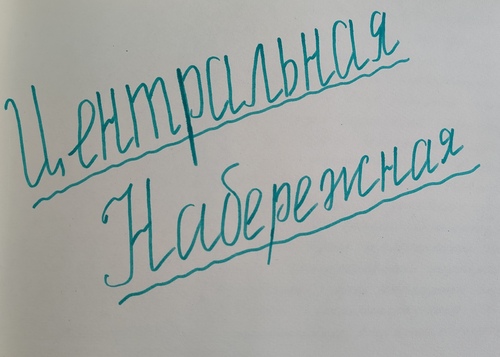 Центральная
Набережная